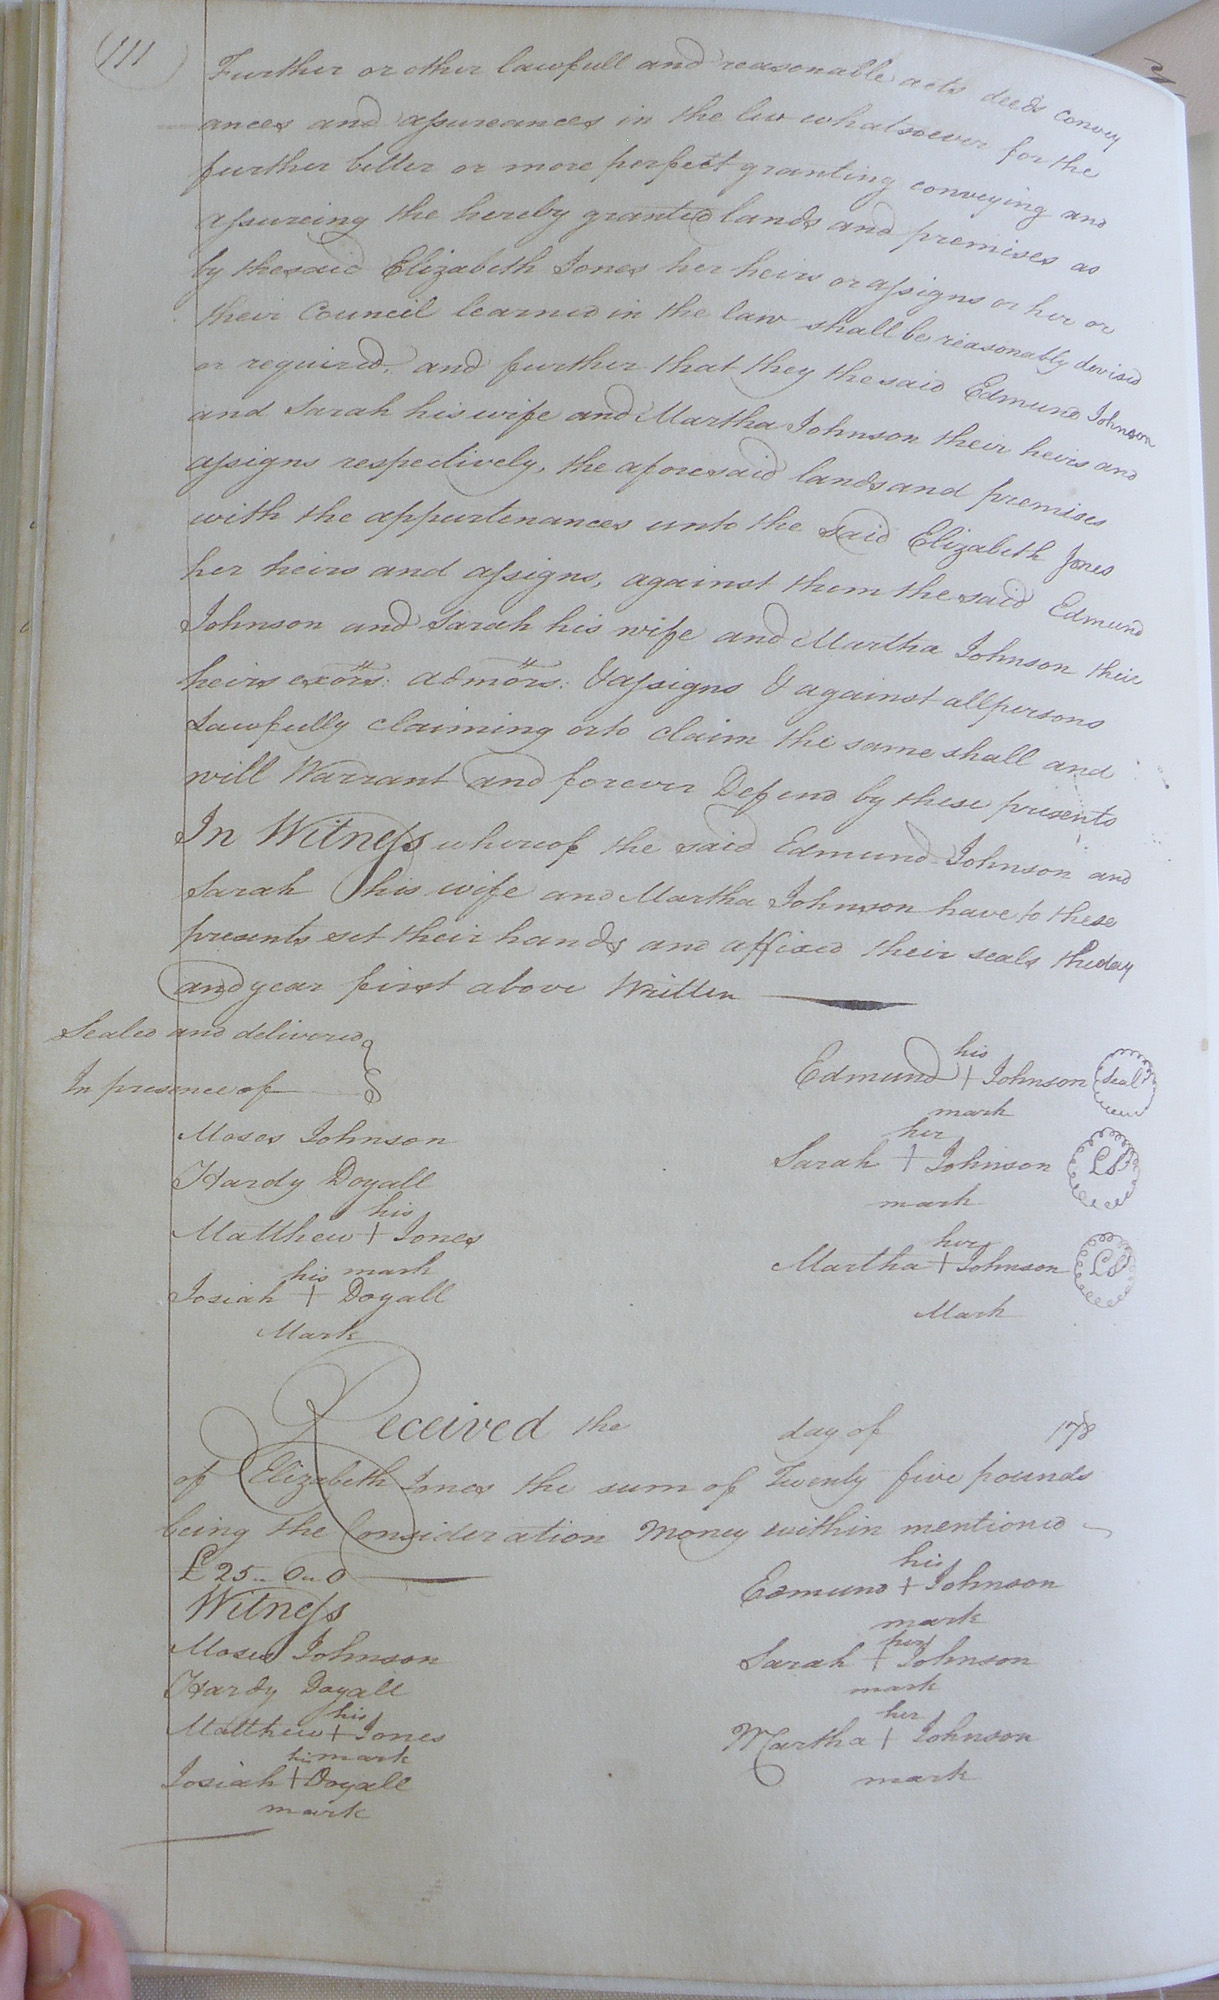 111
Further or other lawfull and reasonable acts deeds convey
ances and assureances in the law whatsoever for the
further better or more perfect granting conveying and
assureing the hereby granted lands and premises as
by the said Elizabeth Jones her heirs or assigns or her or
their Council learned in the law shall be reasonably devised
or required, and further that they the said Edmund Johnson
and Sarah his wife and Martha Johnson their heirs and
assigns respectively, the aforesaid lands and premises
with the appurtenances unto the said Elizabeth Jones
her heirs and assigns, against them the said Edmund
Johnson and Sarah his wife and Martha Johnson their
heirs exors: admors: & assigns & against all persons
Lawfully claiming or to claim the same shall and
will Warrant and forever Defend by these presents
In Witness whereof the said Edmund Johnson and
Sarah his wife and Martha Johnson have to these
presents set their hands and affixed their seals the day
and year first above Written
Sealed and delivered
In presence of
his
Edmund + Johnson Seal
mark
Moses Johnson
her
Sarah + Johnson LS
mark
Hardy Doyall
his
Matthew + Jones
mark
her
Martha + Johnson LS
Mark
his
Josiah + Doyall
Mark
Received the day of 178
of Elizabeth Jones the sum of Twenty five pounds
being the Consideration Money within mentioned
£25..0..0
his
Edmund + Johnson
mark
Witness
Moses Johnson
her
Sarah + Johnson
mark
Hardy Doyall
his
Matthew + Jones
mark
her
Martha + Johnson
mark
his
Josiah + Doyall
mark